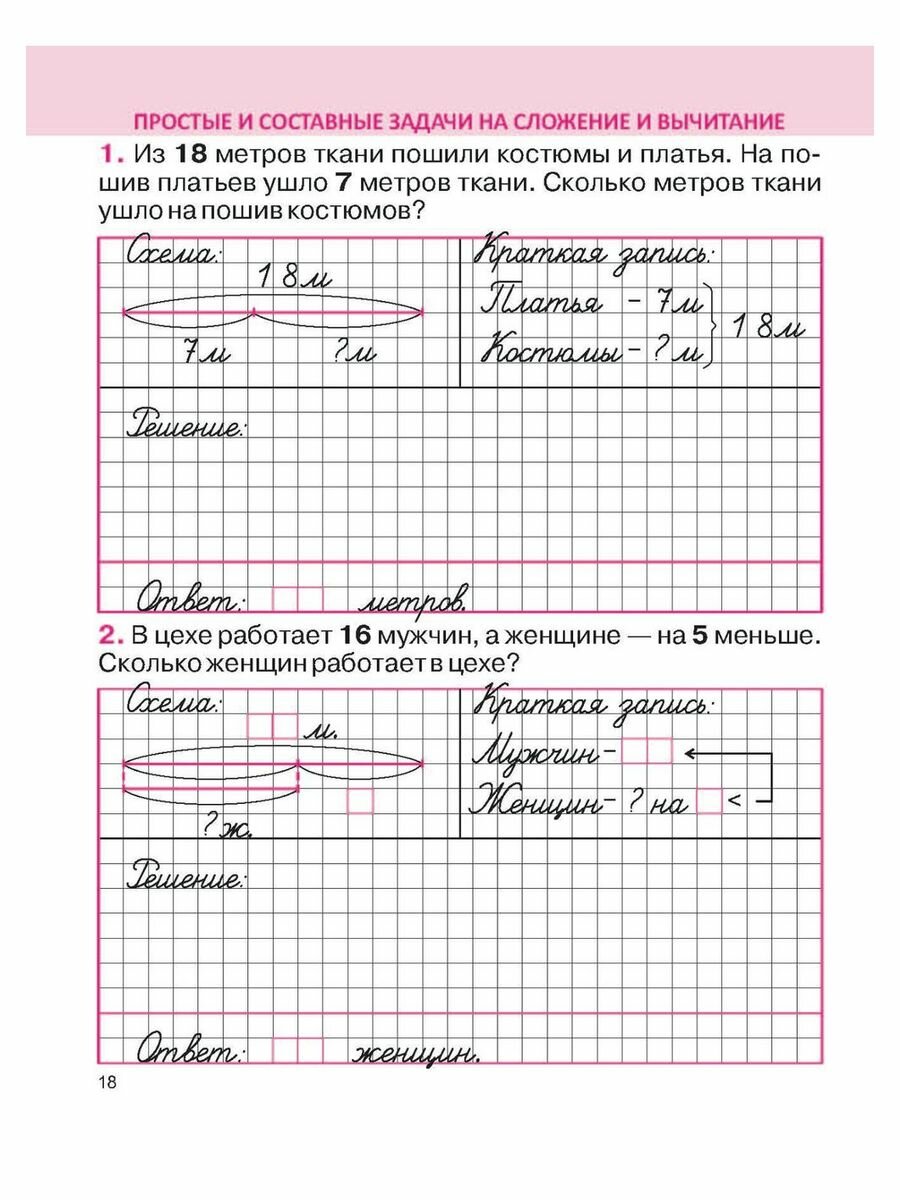 ПРОСТЫЕ И СОСТАВНЫЕ ЗАДАЧИ НА СЛОЖЕНИЕ И ВЫЧИТАНИЕ
1. Из 18 метров ткани пошили костюмы и платья. На по-
шив платьев ушло 7 метров ткани. Сколько метров ткани
ушло на пошив костюмов?
Схема:
18м
7м ?м
Краткая запись:
Платья – 7м
Костюмы – ? м
18м
Решение:
Ответ: метров.
2. В цехе работает 16 мужчин, а женщине — на 5 меньше.
Сколько женщин работает в цехе?
Схема:
м.
?ж.
Краткая запись:
Мужчин –
Женщин – ? на <
Решение:
Ответ: женщин.
18